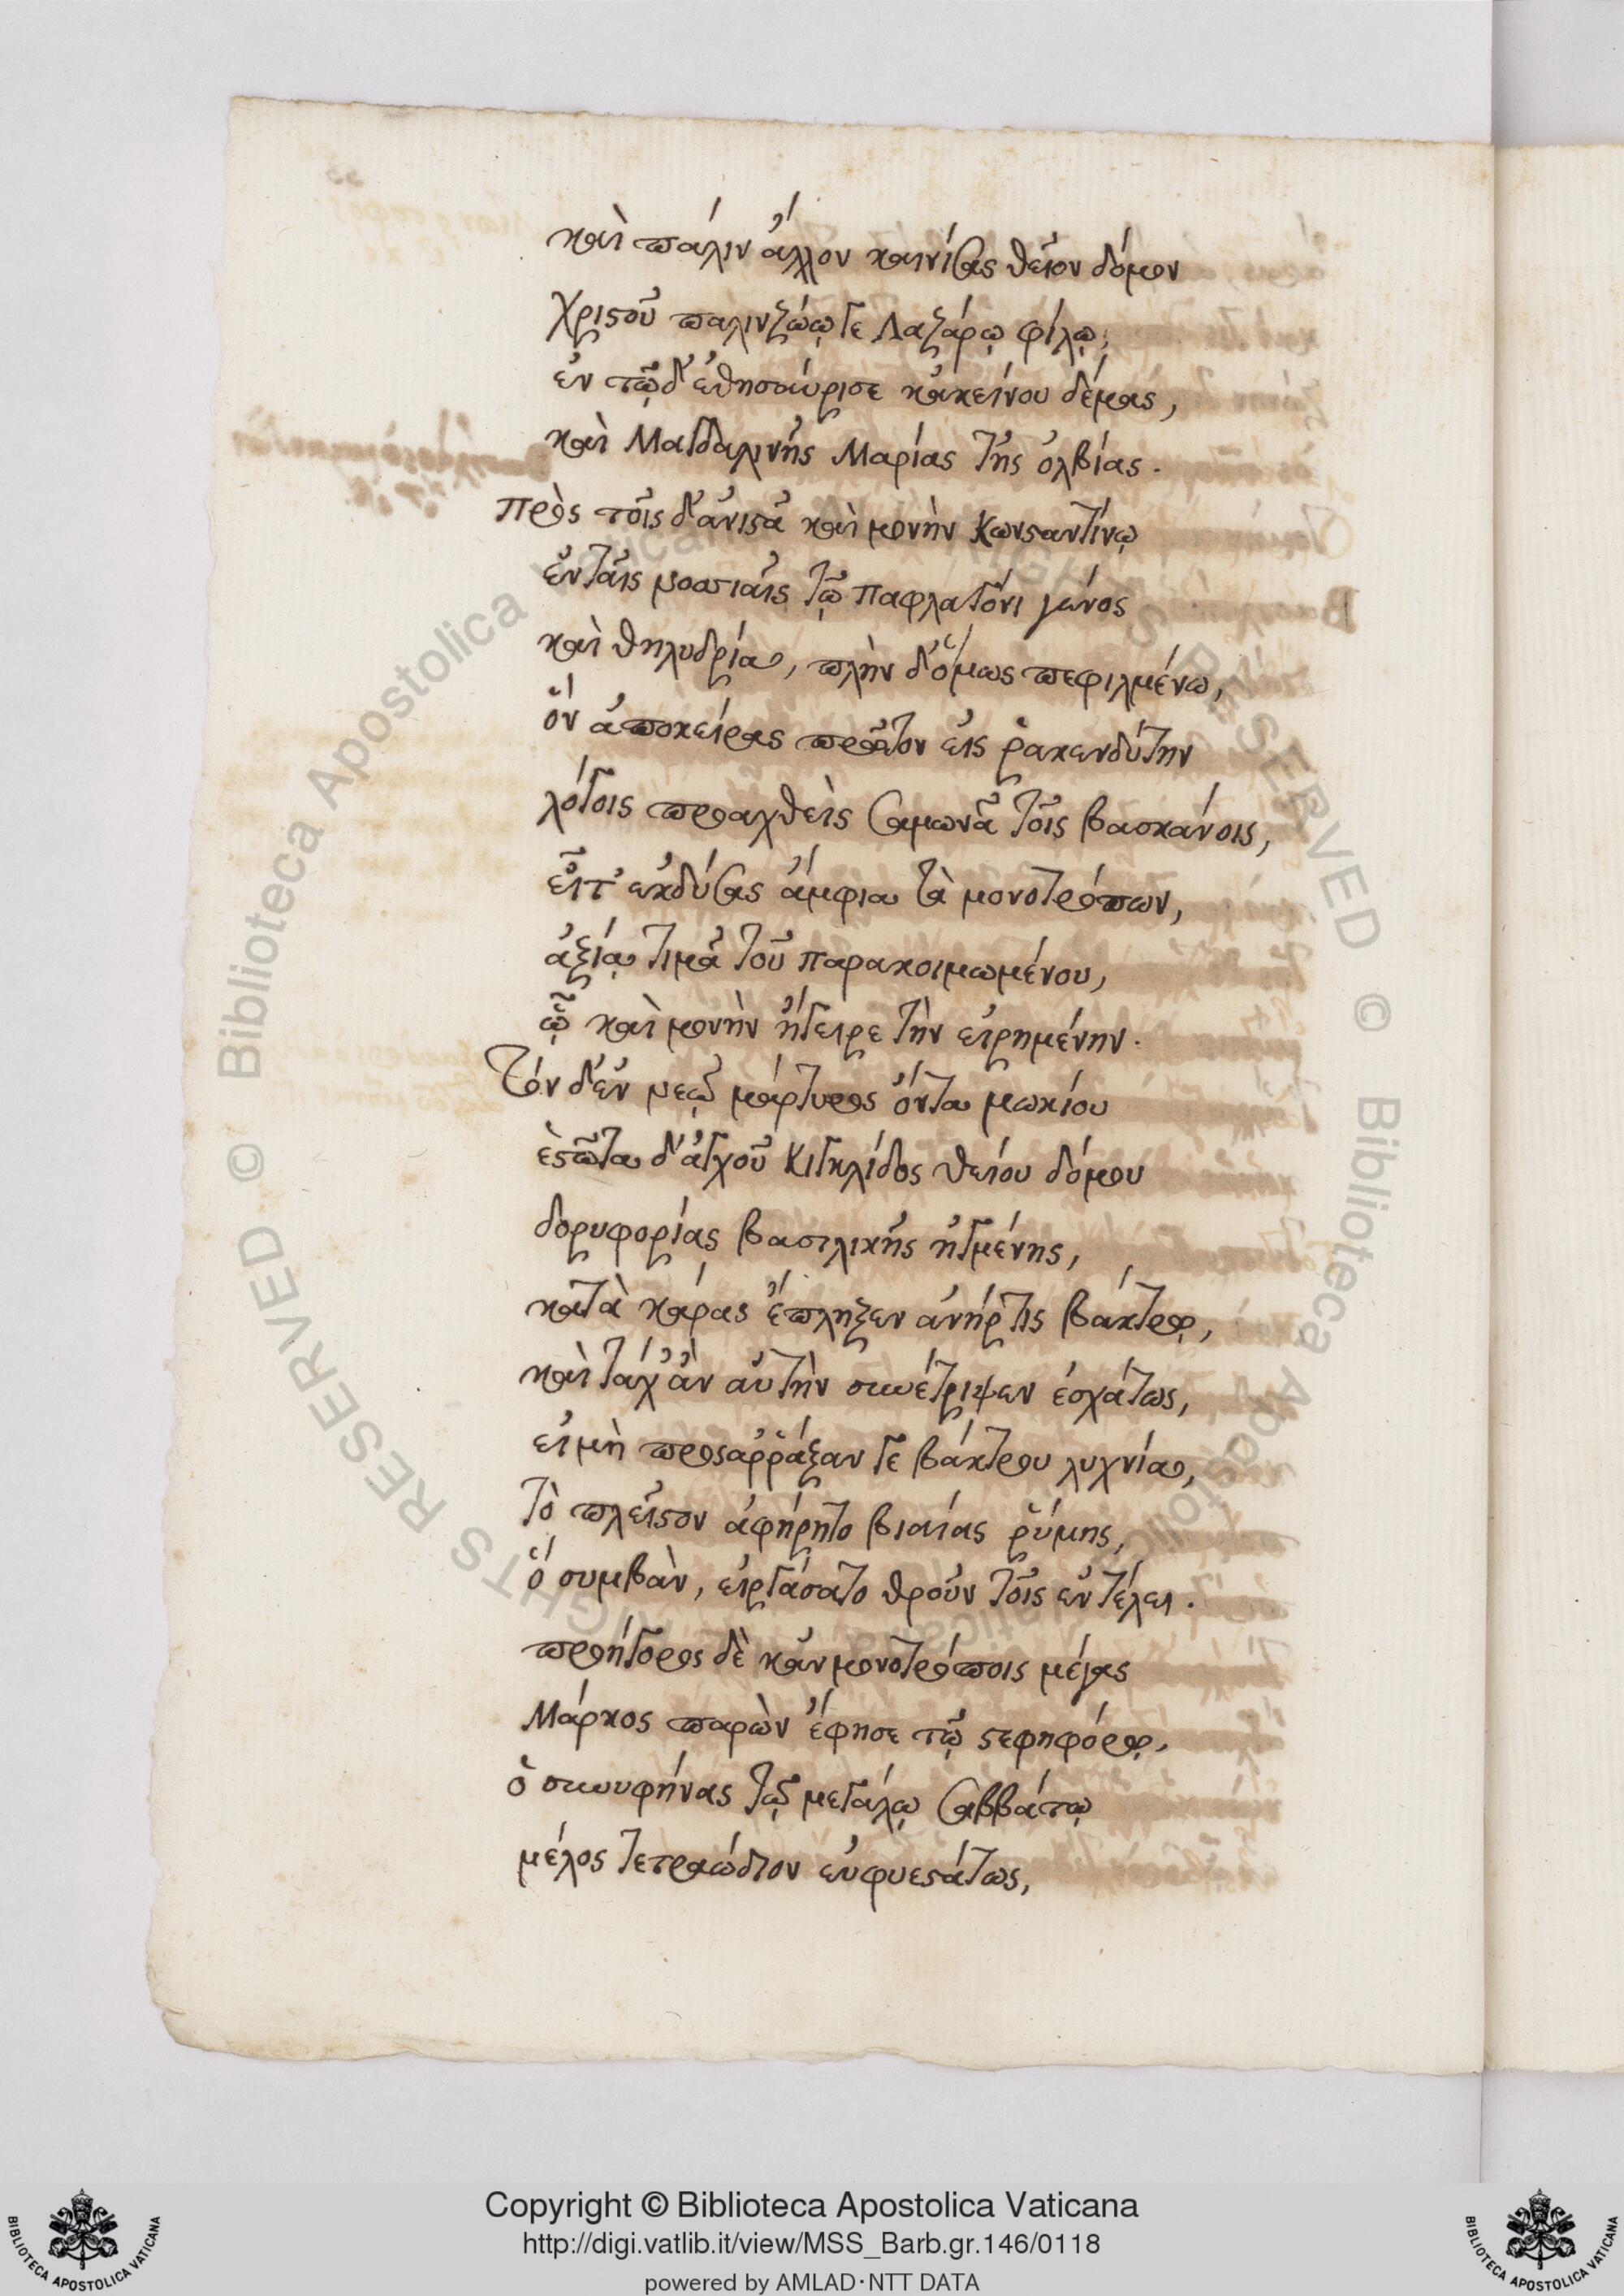 καὶ πάλιν ἄλλον καινίσας θεῖον δόμον
χριστοῦ παλινζώῳ γε Λαζάρῳ φίλῳ,
ἐν τῷ δ' ἐθησαύρισε κἀκείνου δέμας,
καὶ Μαγδαλινῆς Μαρίας τῆς ὀλβίας.
Πρὸς τοῖς δ' ἀνιστᾶ καὶ μονὴν Κωνσταντίνῳ
ἐν ταῖς νοσιαῖς τῷ παφλαγόνι γένος
καὶ θηλυδρίᾳ, πλὴν δ' ὅμως πεφιλμένω,
ὃν ἀποκείρας πρῶτον εἰς ῥακενδύτην
λόγοις πραχθεὶς Σαμωνᾶ τοῖς βασκάνοις,
εἶτ' ἐκδύσας ἄμφια τὰ μονοτρόπων,
ἀξίᾳ τιμᾶ τοῦ παρακοιμωμένου,
ᾧ καὶ μονὴν ἤγειρε τὴν εἰρημένην.
Τὸν δ' ἐν νεῷ μάρτυρος ὄντα μωκίου
ἑστῶτα δ' ἀγχοῦ κιγκλίδος θείου δόμου
δορυφορίας βασιλικῆς ἠγμένης,
κατὰ κάρας ἔπληξεν ἀνήρ τις βάκτρῳ,
καὶ τάχ' ἂν αὐτὴν συνέτριψεν ἐσχάτως,
εἰ μὴ προσαῤῥάξαν γε βάκτρου λυχνίᾳ,
τὸ πλεῖστον ἀφῄρητο βιαίας ῥύμης,
ὃ συμβὰν, εἰργάσατο θροῦν τοῖς ἐν τέλει.
προήγορος δὲ κἀν μονοτρόποις μέγας
Μάρκος παρὼν ἔφησε τῷ στεφηφόρῳ,
ὁ συνυφήνας τῷ μεγάλῳ Σαββάτῳ
μέλος τετραώδιον εὐφυεστάτως,
Copyright © Biblioteca Apostolica Vaticana
http://digi.vatlib.it/view/MSS_Barb.gr.146/0118
powered by AMLAD·NTT DATA
BIBLIOTECA APOSTOLICA VATICANA
BIBLIOTECA APOSTOLICA VATICANA